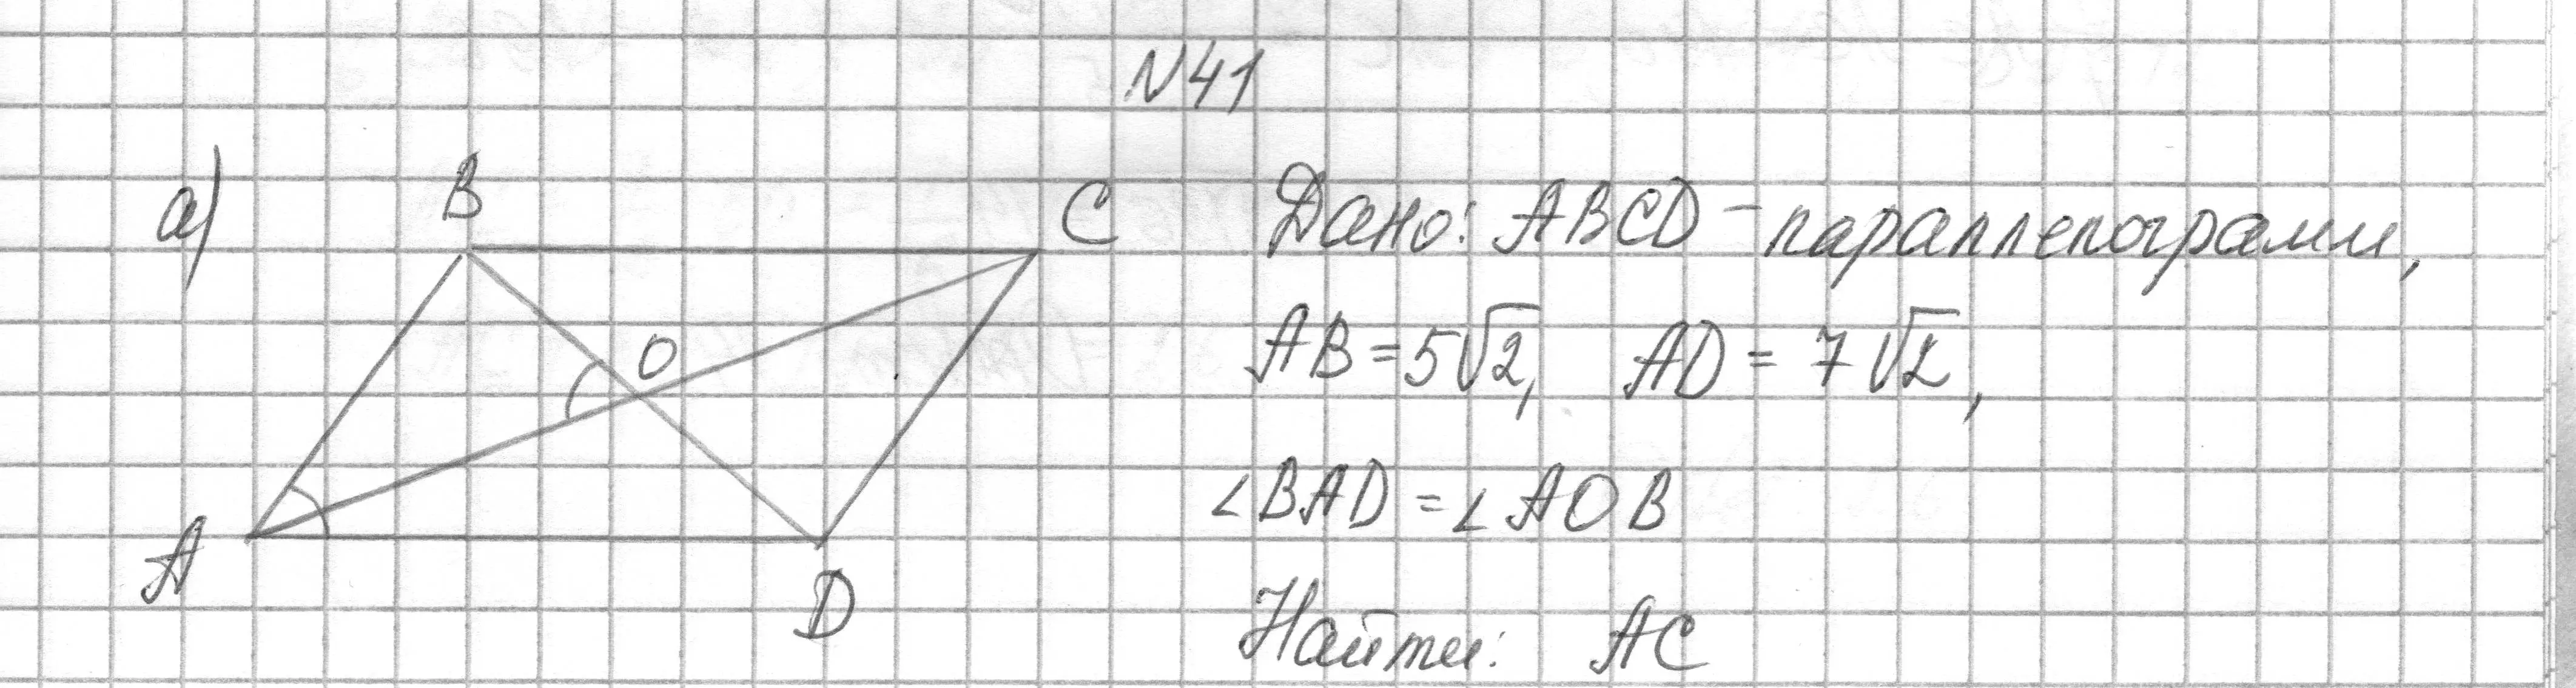 N41
а)
B
C
O
A
D
Дано: ABCD - параллелограмм,
AB = 5√2, AD = 7√2,
∠BAD = ∠AOB
Найти: AC